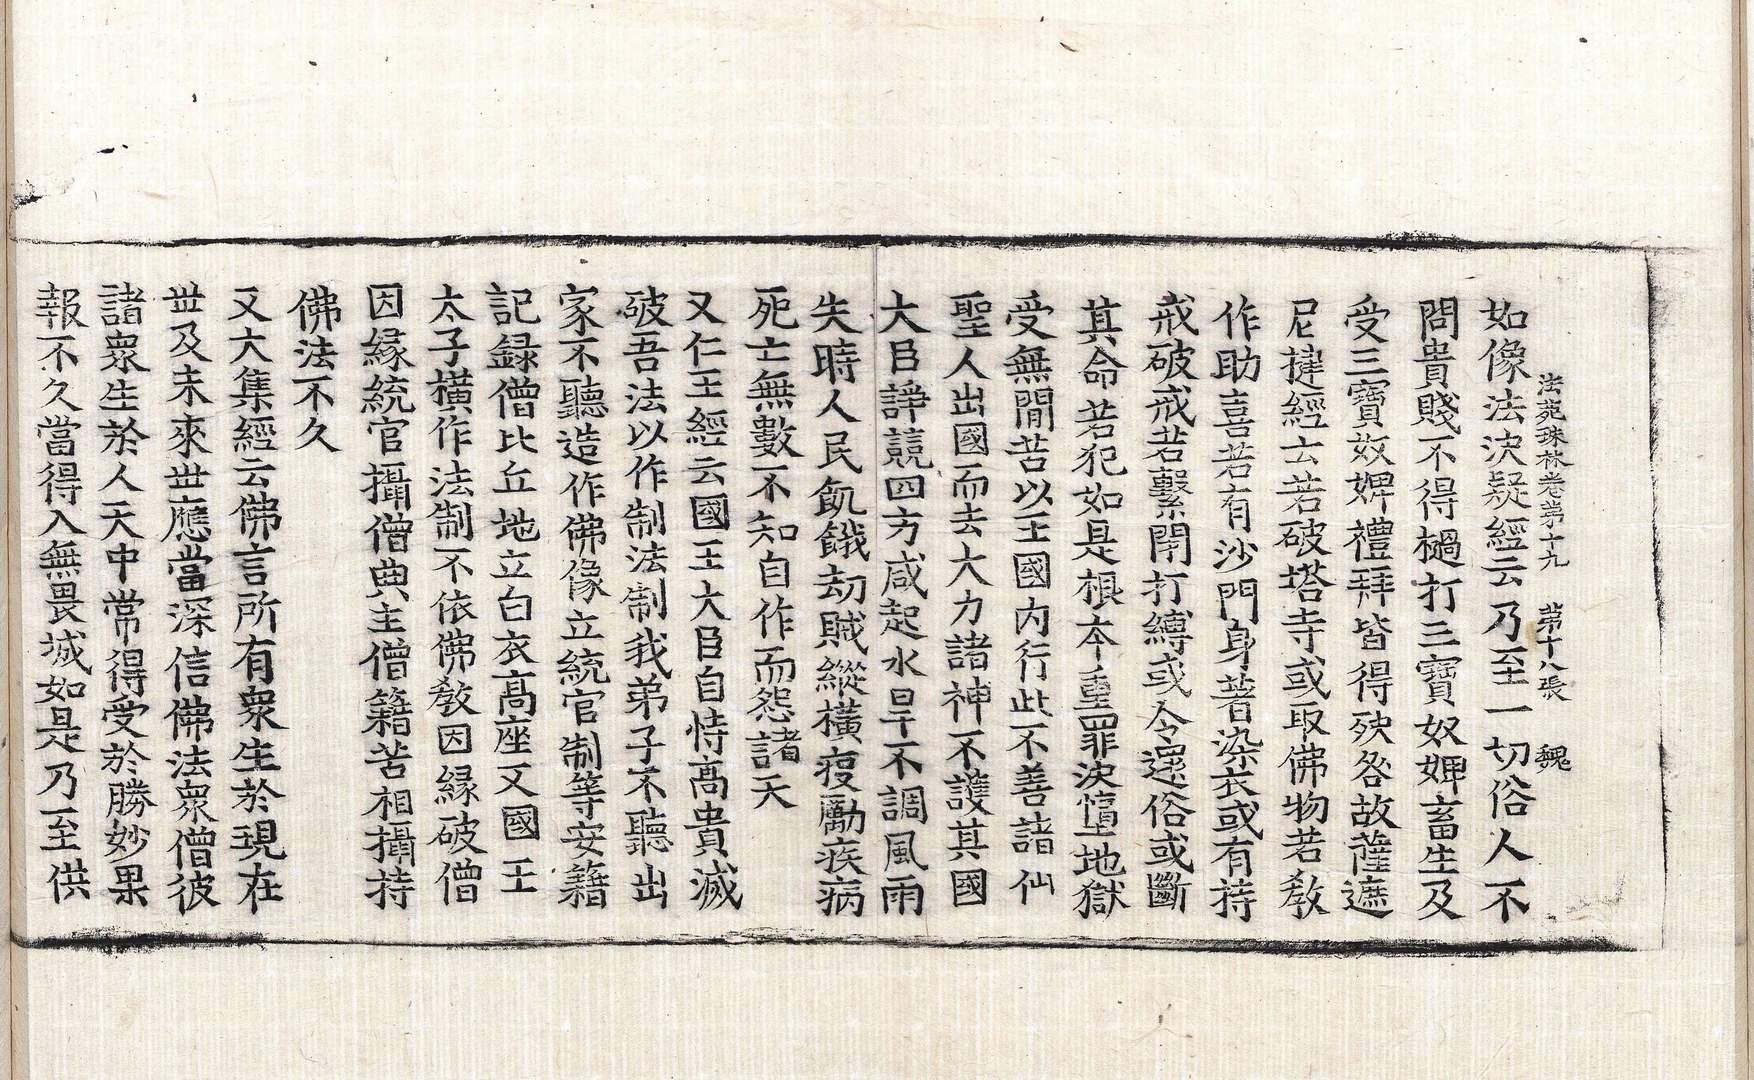 法苑珠林卷苐十九 苐十八張 魏
如像法決疑經云乃至一切俗人不
問貴賤不得撾打三寶奴婢畜生及
受三寶奴婢禮拜皆得殃咎故薩遮
尼揵經云若破塔寺或取佛物若教
作助喜若有沙門身著染衣或有持
戒破戒若繫閉打縛或令還俗或斷
其命若犯如是根本重罪決墮地獄
受無閒苦以王國內行此不善諸仙
聖人出國而去大力諸神不護其國
大臣諍競四方咸起水旱不調風雨
失時人民飢餓劫賊縱橫疫厲疾病
死亡無數不知自作而怨諸天
又仁王經云國王大臣自恃高貴滅
破吾法以作制法制我弟子不聽出
家不聽造作佛像立統官制等安籍
記録僧比丘地立白衣高座又國王
太子橫作法制不依佛教因緣破僧
因緣統官攝僧典主僧籍苦相攝持
佛法不久
又大集經云佛言所有衆生於現在
世及未來世應當深信佛法衆僧彼
諸衆生於人天中常得受於勝妙果
報不久當得入無畏城如是乃至供